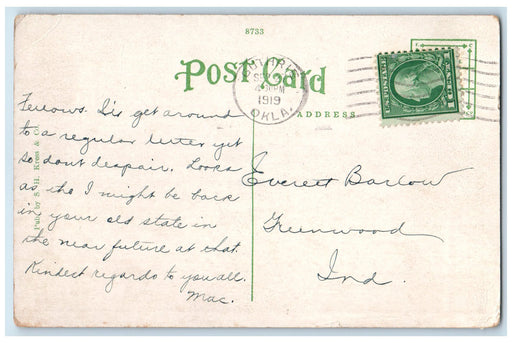 8733
Post Card
GUTHRIE
SEP
4-30PM
1919
OKLA.
ADDRESS
U.S. POSTAGE
1 CENT 1
Pub. by S. H. Kress & Co.
Fellows. I'll get around
to a regular letter yet
so dont despair. Looks
as tho I might be back
in your old state in
the near future at that.
Kindest regards to you all.
Mac.
Everett Barlow
Greenwood
Ind.